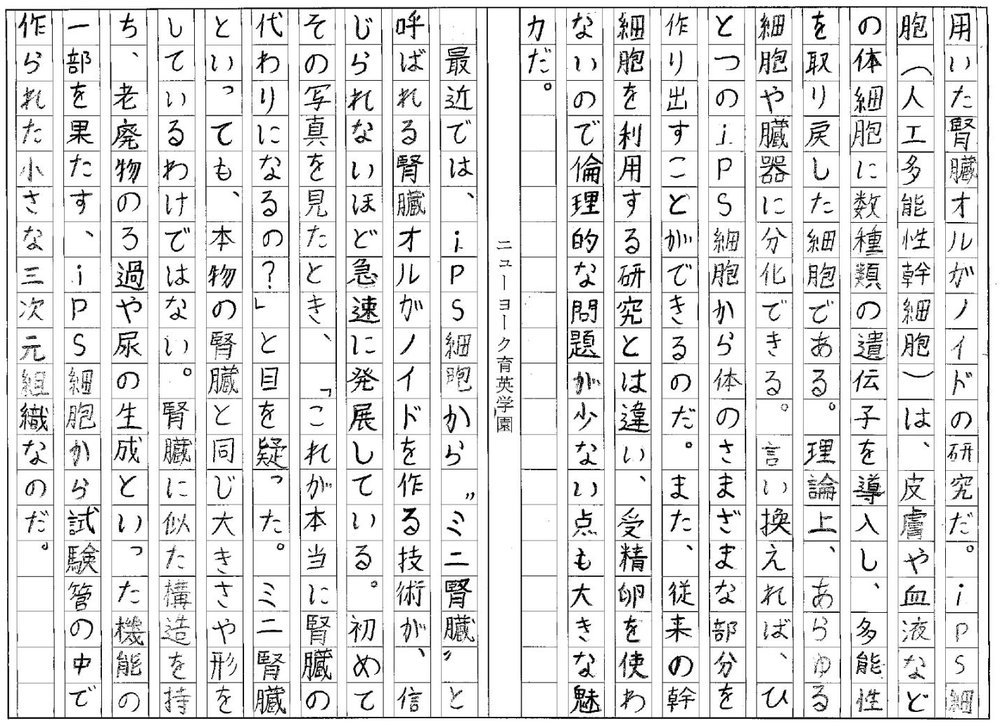 用いた腎臓オルガノイドの研究だ。iPS細
胞(人工多能性幹細胞)は、皮膚や血液など
の体細胞に数種類の遺伝子を導入し、多能性
を取り戻した細胞である。理論上、あらゆる
細胞や臓器に分化できる。言い換えれば、ひ
とつのiPS細胞から体のさまざまな部分を
作り出すことができるのだ。また、従来の幹
細胞を利用する研究とは違い、受精卵を使わ
ないので倫理的な問題が少ない点も大きな魅
力だ。
ニューヨーク育英学園
最近では、iPS細胞から〝ミニ腎臓〟と
呼ばれる腎臓オルガノイドを作る技術が、信
じられないほど急速に発展している。初めて
その写真を見たとき、「これが本当に腎臓の
代わりになるの?」と目を疑った。ミニ腎臓
といっても、本物の腎臓と同じ大きさや形を
しているわけではない。腎臓に似た構造を持
ち、老廃物のろ過や尿の生成といった機能の
一部を果たす、iPS細胞から試験管の中で
作られた小さな三次元組織なのだ。